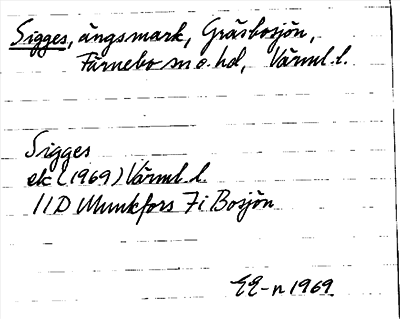 Sigges, ängsmark, Gräsbosjön,
Färnebo sn o. hd, Värml. l.
Sigges
ek (1969) Värml. l.
11D Munkfors 7i Bosjön
EE-n 1969